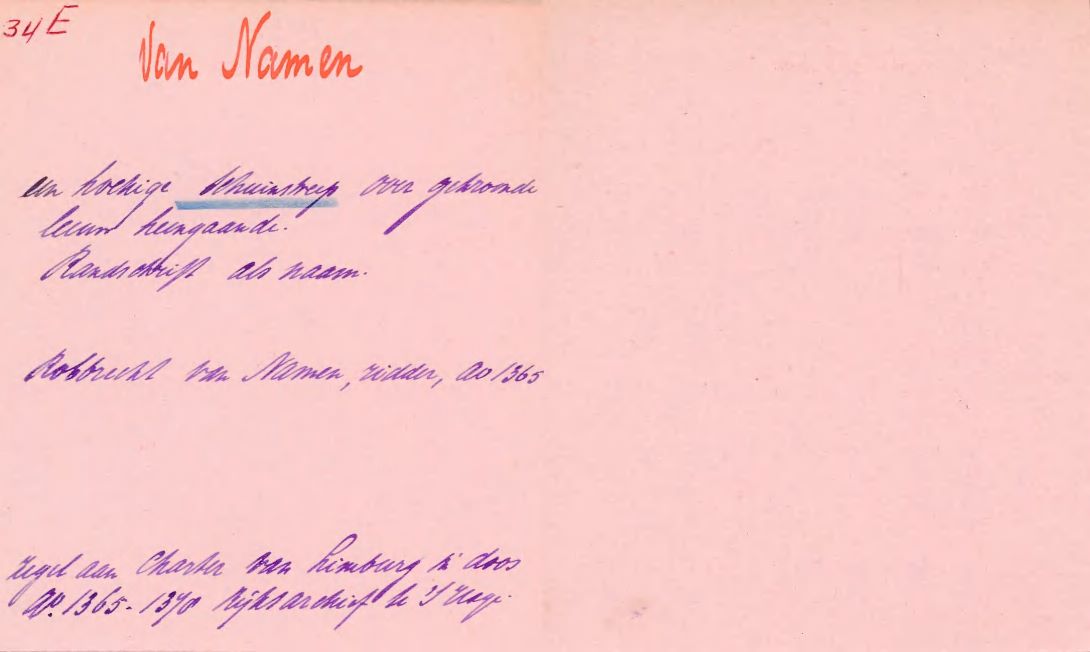 34 E
Van Namen
een hoekige schuinstreep over gekroonde
leeuw heengaande.
Randschrift als naam.
Robbrecht van Namen, ridder, Ao 1365
zegel aan Charter van Limburg in doos
Ao. 1365-1370 Rijksarchief te 's Hage.